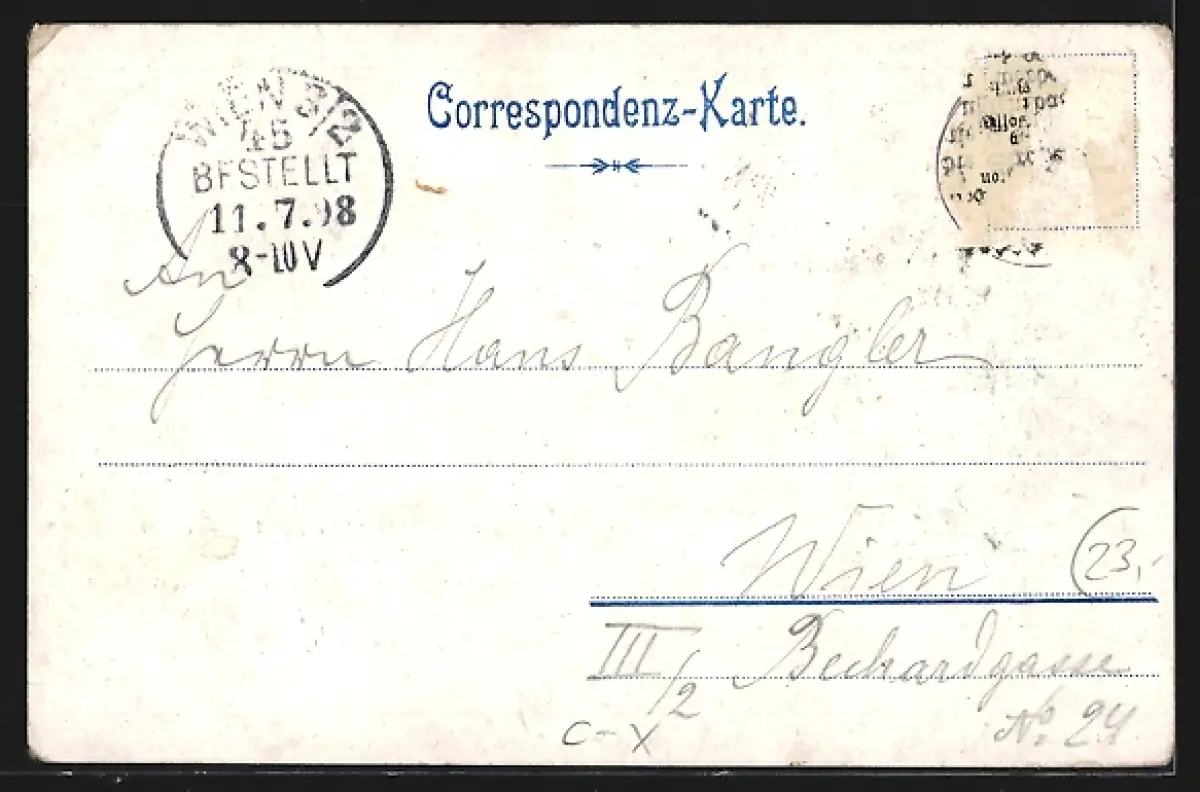 Correspondenz-Karte.
WIEN 3/2
45
BESTELLT
11.7.98
8-10V
An
Herrn Hans Bangler
Wien
(23,-
III/2 Bechardgasse
No. 24
C-X